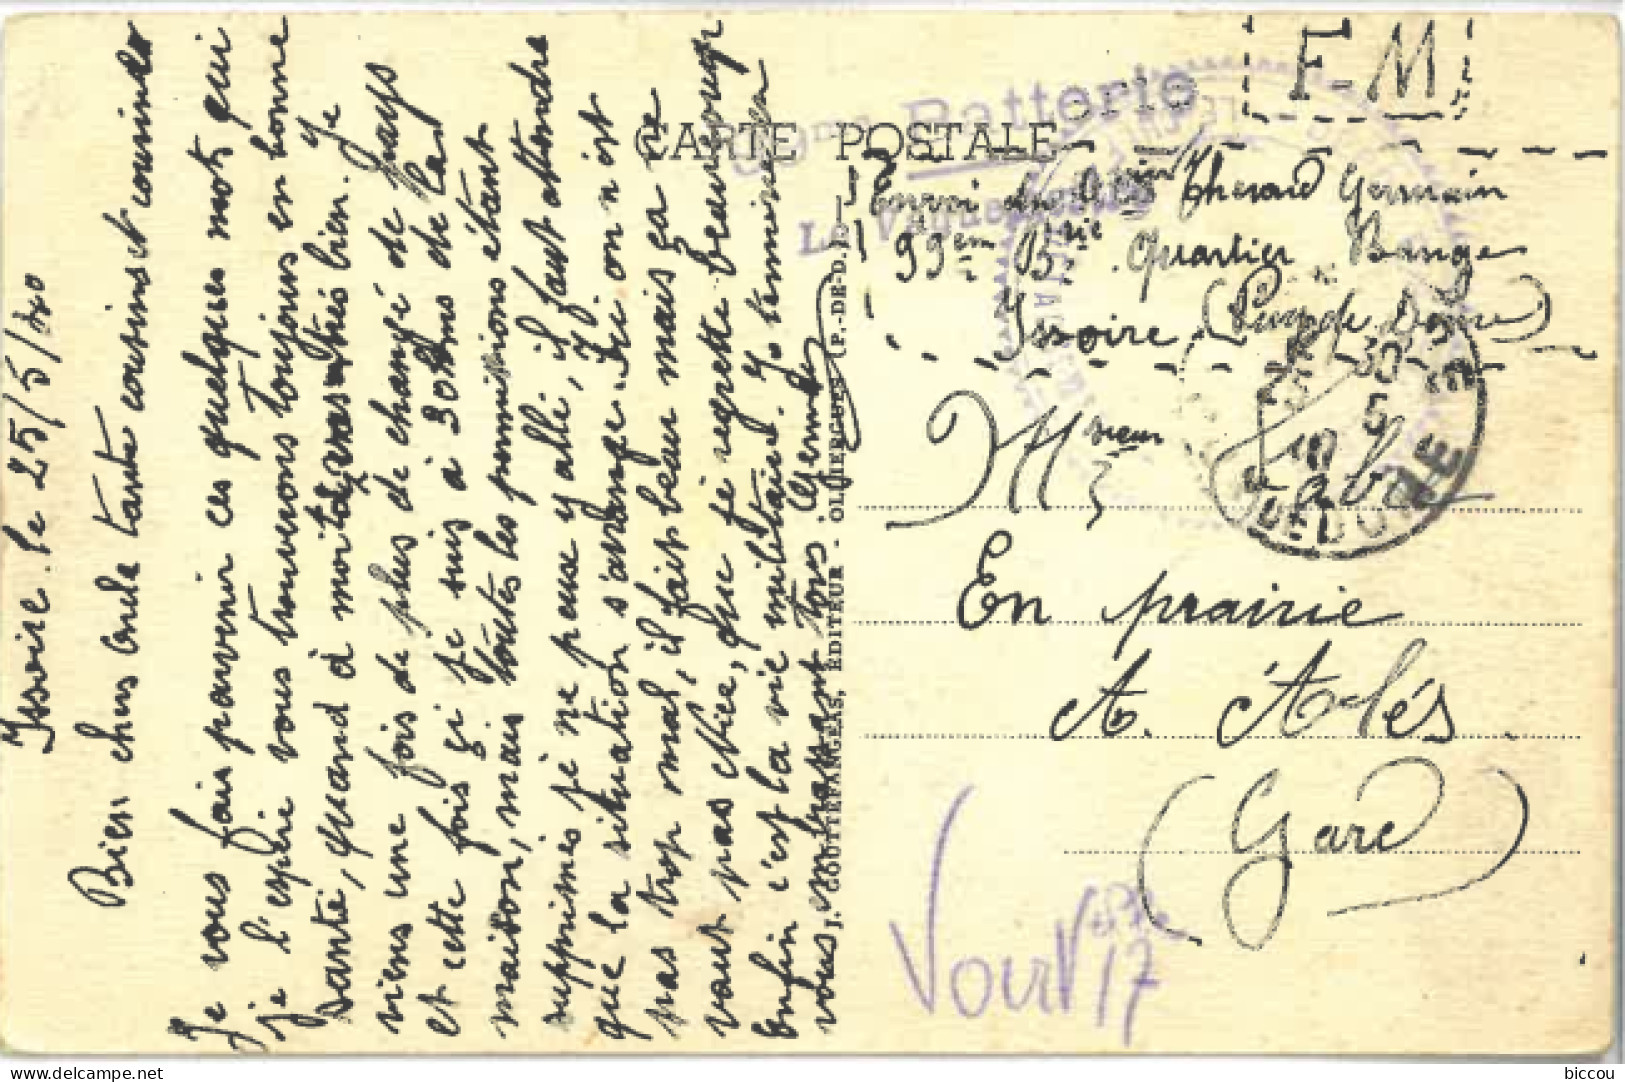 Issoire. le 25/5/40
Bien chers oncle tante cousins et cousines
Je vous fais parvenir ces quelques mots qui
je l'espère vous trouverons toujours en bonne
santé, quand à moi tout va très bien. Je
viens une fois de plus de changé de pays
et cette fois çi je suis à 30 kms de la
maison, mais toutes les permissions étant
supprimés je ne peux y allé, il faut attendre
que la situation s'arrange. Ici on n'est
pas trop mal, il fait beau mais ça ne
vaut pas Nice, que je regrette beaucoup
enfin c'est la vie militaire. Je termine en
vous embrassant tous. Germain
J. GOUTTEFANGEAS, ÉDITEUR - OLLIERGUES (P.-DE-D.)
CARTE POSTALE
F-M
99eme Batterie
Le Vaguemestre
Envoi du Thérond Germain
99em Brie Quartier Bange
Issoire (Puy de Dôme)
Msieur
En prairie
A. Alés
(Gard)
PUY DE DOME
biccou